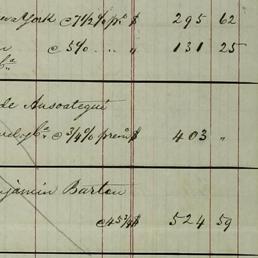 York @ 7 1/2 % pm $ 295 62
@ 5% " " 131 25
de Ansoategui
@ 3/4 % prem $ 403 "
jamin Barton
@ 45 3/4 $ 524 59